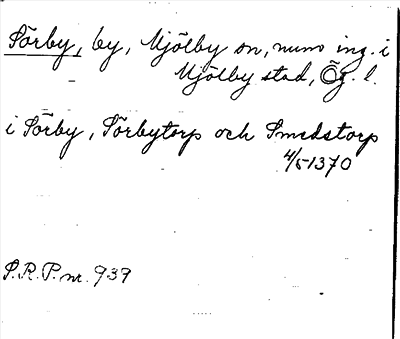 Sörby, by, Mjölby sn, num ing. i
Mjölby stad, Ög. l.
i Sörby, Sörbytorp och Smedstorp
4/5 1370
S.R.P. nr. 939